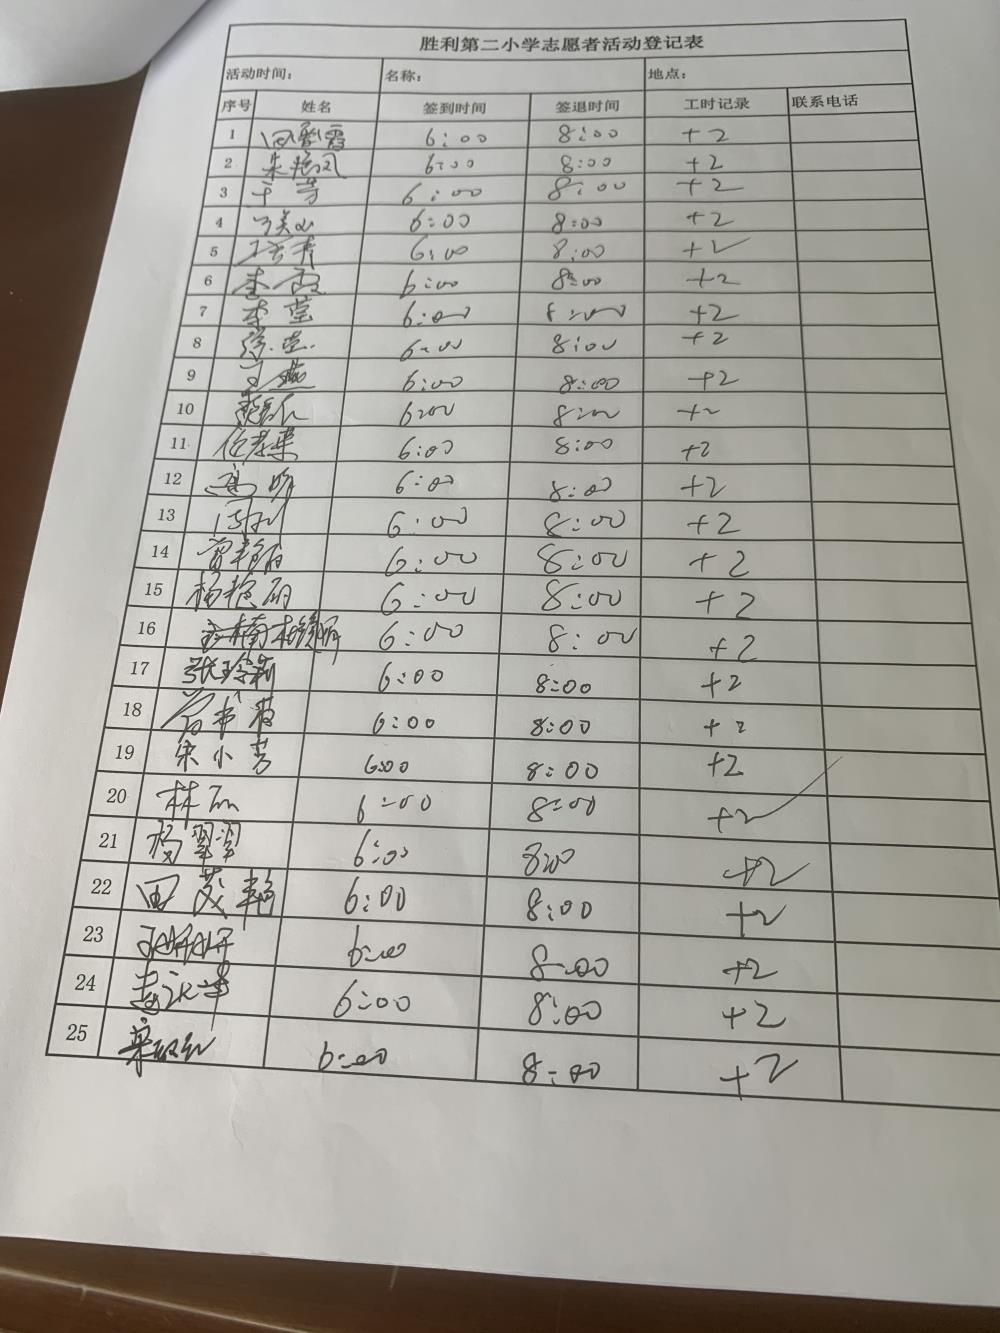 胜利第二小学志愿者活动登记表
活动时间： 名称： 地点：
序号 姓名 签到时间 签退时间 工时记录 联系电话
1 6:00 8:00 +2
2 朱艳凤 6:00 8:00 +2
3 于芳 6:00 8:00 +2
4 6:00 8:00 +2
5 6:00 8:00 +2
6 李霞 6:00 8:00 +2
7 李莹 6:00 8:00 +2
8 6:00 8:00 +2
9 于燕 6:00 8:00 +2
10 6:00 8:00 +2
11 6:00 8:00 +2
12 6:00 8:00 +2
13 6:00 8:00 +2
14 6:00 8:00 +2
15 杨艳丽 6:00 8:00 +2
16 6:00 8:00 +2
17 张玲莉 6:00 8:00 +2
18 6:00 8:00 +2
19 宋小芳 6:00 8:00 +2
20 林 6:00 8:00 +2
21 杨翠翠 6:00 8:00 +2
22 田茂艳 6:00 8:00 +2
23 6:00 8:00 +2
24 6:00 8:00 +2
25 6:00 8:00 +2